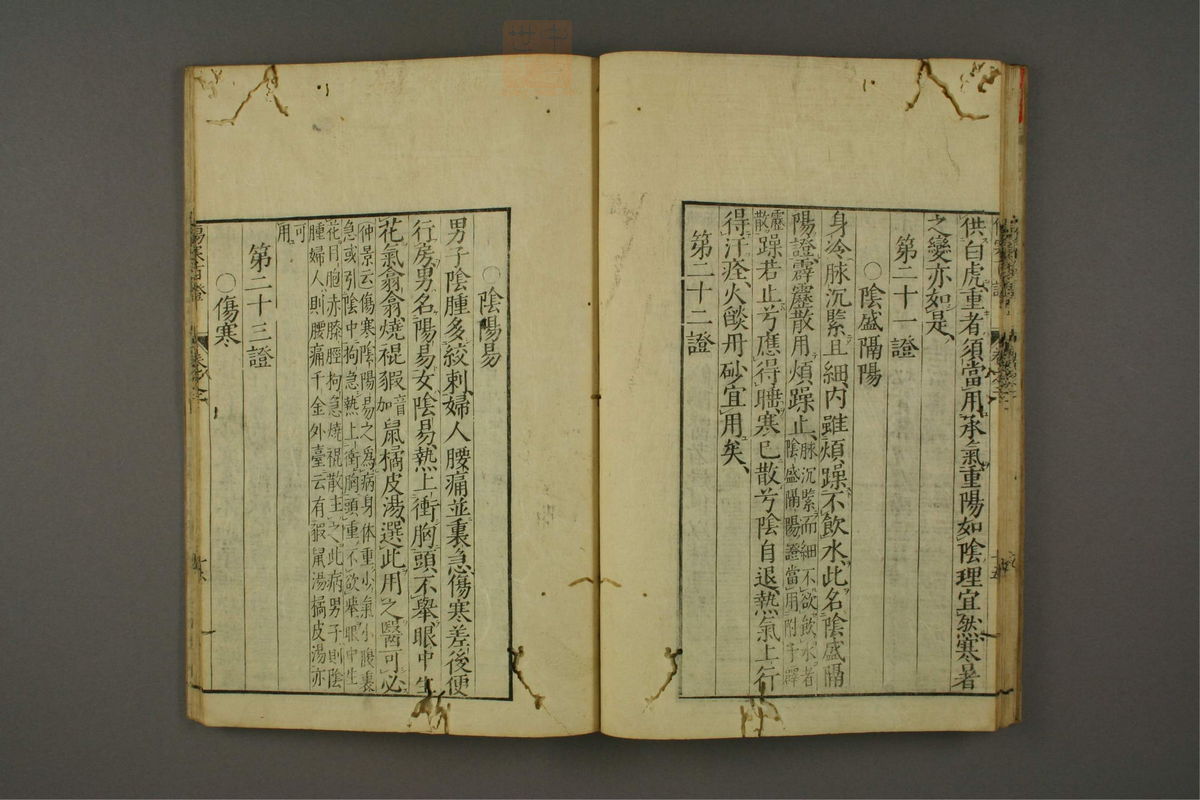 供白虎重者須當用承氣重陽如陰理宜然寒暑
之變亦如是
第二十一證
○陰盛隔陽
身冷脉沉緊且細内雖煩躁不飲水此名陰盛隔
陽證霹靂散用煩躁止脉沉緊而細不欲飲水者陰盛隔陽證當用附子霹
靂散躁若止兮應得睡寒已散兮陰自退熱氣上行
得汗痊火燄丹砂宜用矣
第二十二證
○陰陽易
男子陰腫多絞刺婦人腰痛並裏急傷寒差後便
行房男名陽易女陰易熱上衝胸頭不舉眼中生
花氣翕翕燒裩猳音加鼠橘皮湯選此用之醫可必
仲景云傷寒陰陽易之為病身体重少氣小腹裏
急或引陰中拘急熱上衝胸頭重不欲舉眼中生
花目胞赤膝脛拘急燒裩散主之此病男子則陰
腫婦人則腰痛千金外臺云有猳鼠湯橘皮湯亦
可用
第二十三證
○傷寒